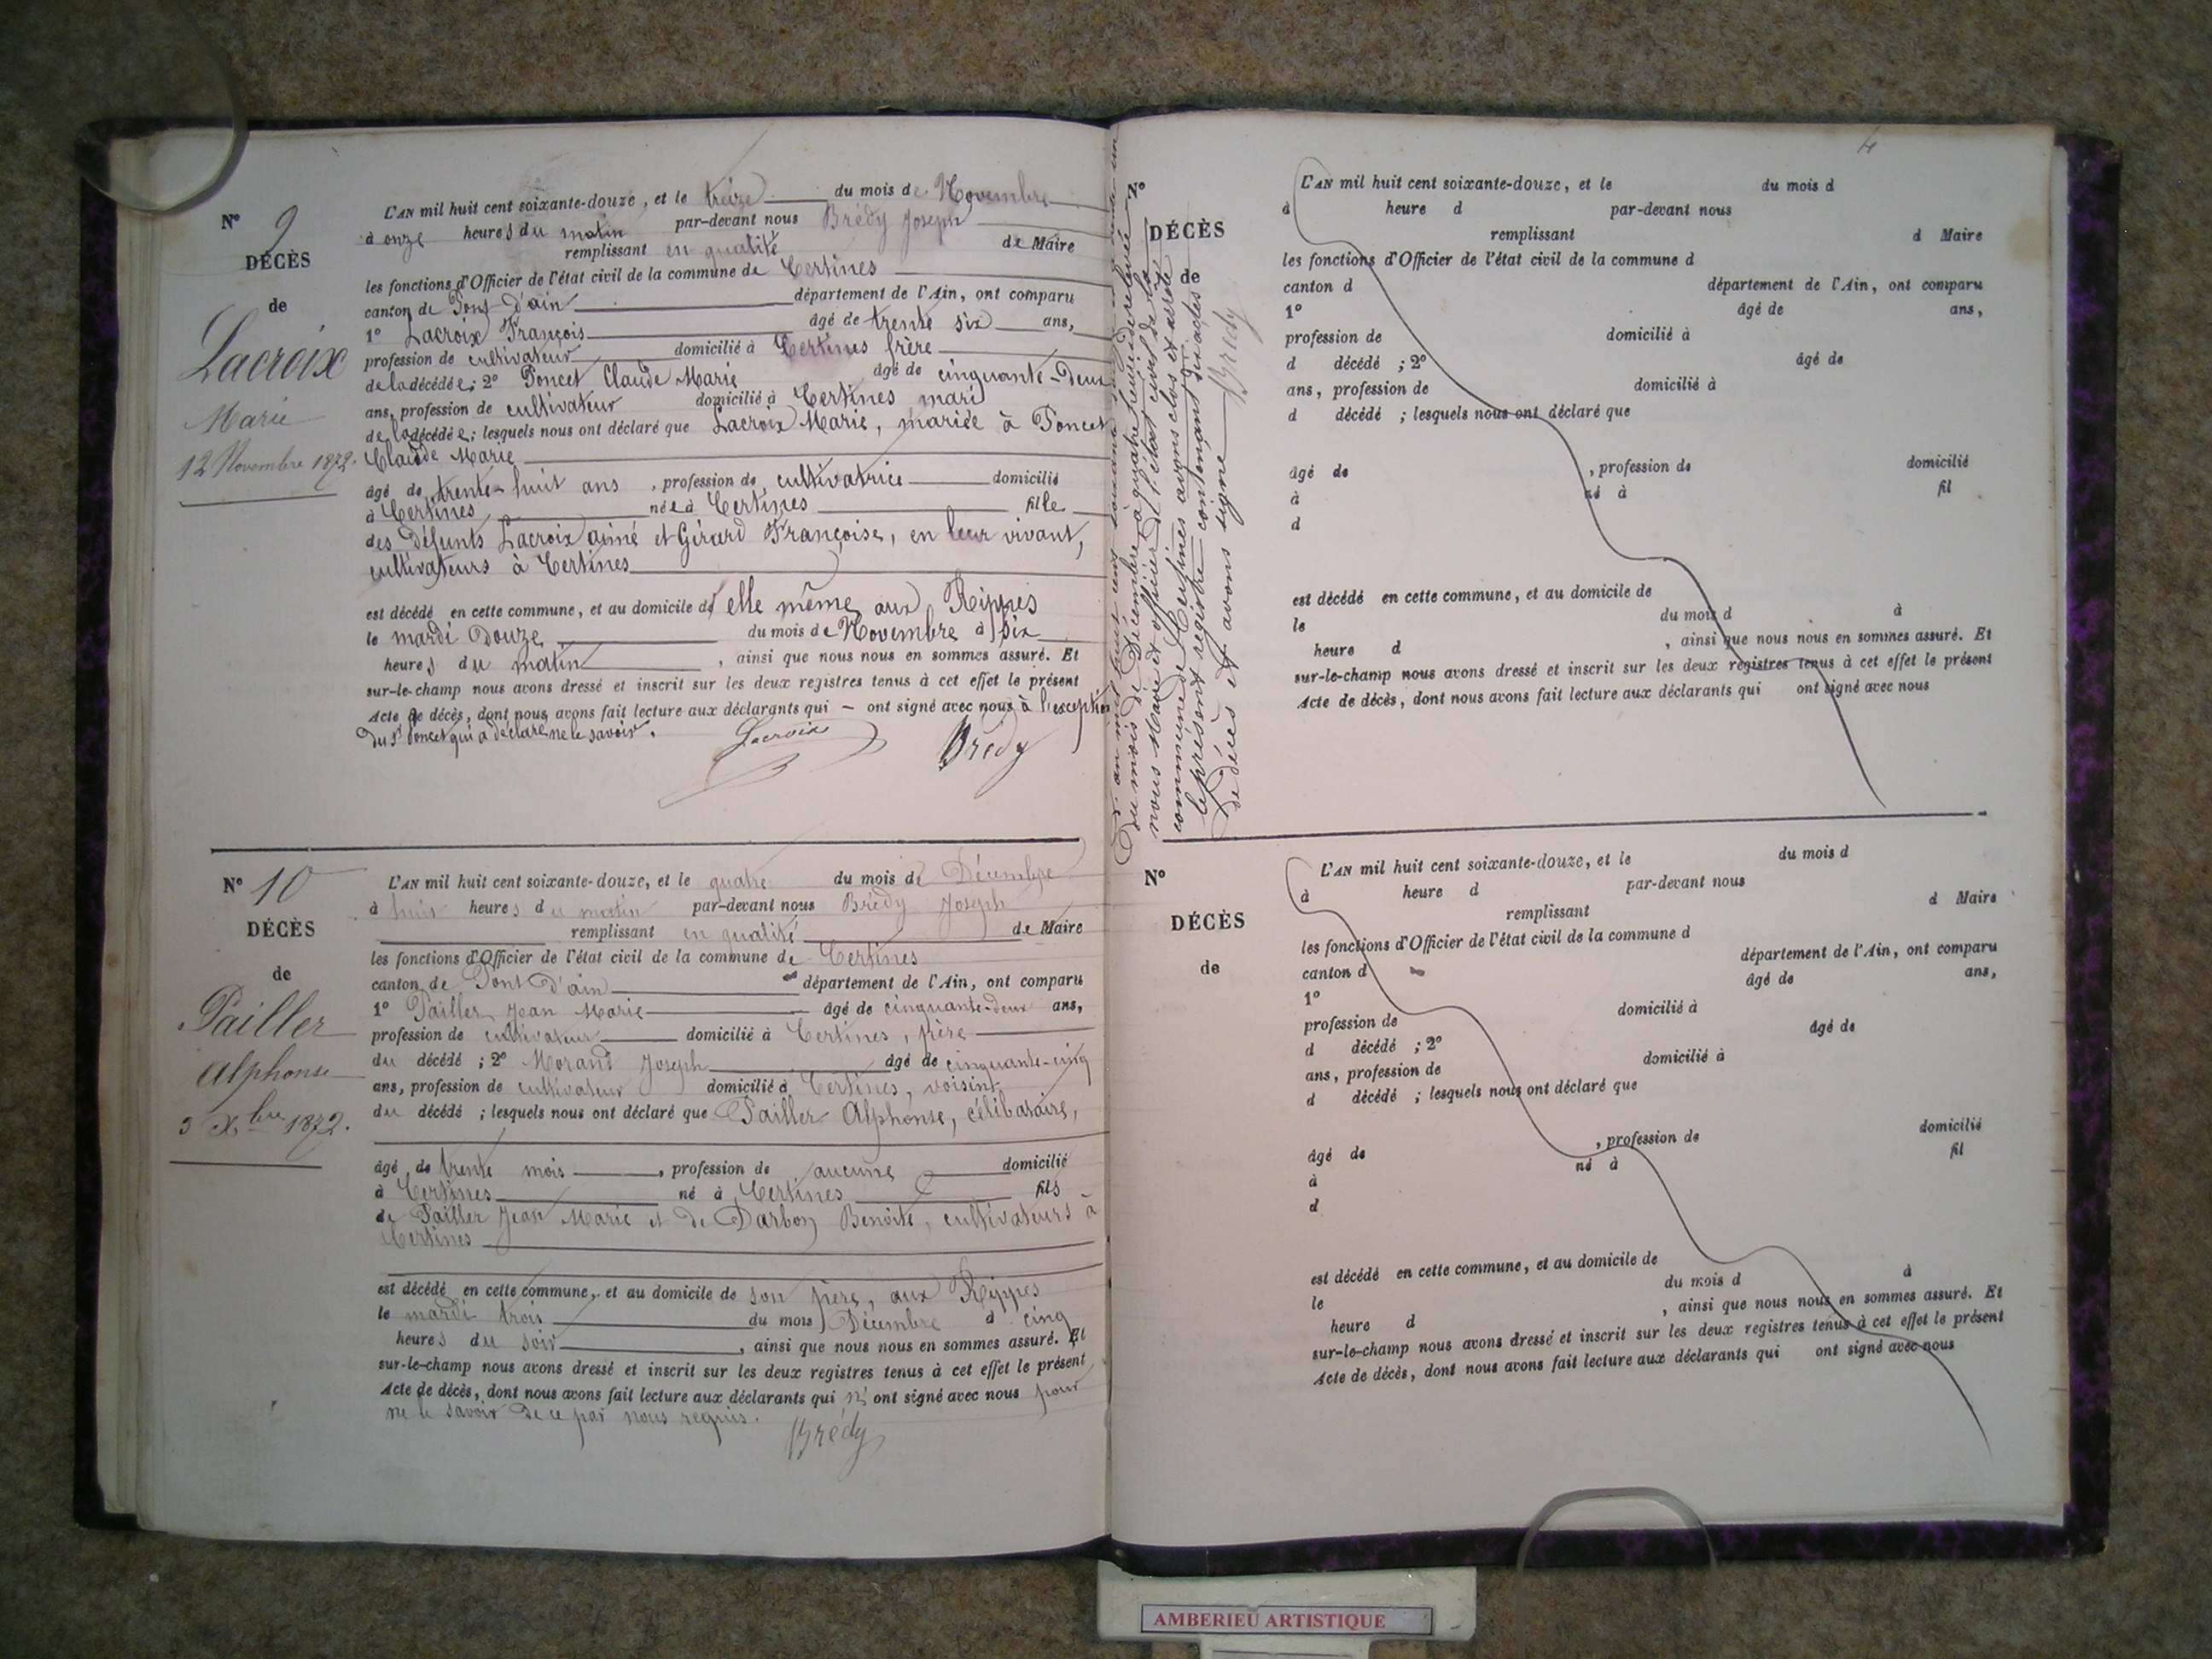 Nº 9
DÉCÈS
de
Lacroix
Marie
12 Novembre 1872.
L'AN mil huit cent soixante-douze, et le treize du mois de Novembre
à onze heures du matin par-devant nous Brédy Joseph
remplissant en qualité de Maire
les fonctions d'Officier de l'état civil de la commune de Certines
canton de Pont d'ain département de l'Ain, ont comparu
1º Lacroix François âgé de trente six ans,
profession de cultivateur domicilié à Certines frère
de la décédée; 2º Poncet Claude Marie âgé de cinquante-deux
ans, profession de cultivateur domicilié à Certines mari
de la décédée; lesquels nous ont déclaré que Lacroix Marie, mariée à Poncet
Claude Marie
âgé de trente-huit ans, profession de cultivatrice domicilié
à Certines née à Certines fille
des défunts Lacroix aimé et Gérard Françoise, en leur vivant,
cultivateurs à Certines
est décédé en cette commune, et au domicile d' elle même aux Rippes
le mardi douze du mois de Novembre à six
heures du matin, ainsi que nous nous en sommes assuré. Et
sur-le-champ nous avons dressé et inscrit sur les deux registres tenus à cet effet le présent
Acte de décès, dont nous avons fait lecture aux déclarants qui — ont signé avec nous à l'exception
du Sr Poncet qui a déclaré ne le savoir.
Lacroix Brédy
Nº 10
DÉCÈS
de
Pailler
Alphonse
3 Xbre 1872.
L'AN mil huit cent soixante-douze, et le quatre du mois de Décembre
à huit heures du matin par-devant nous Brédy Joseph
remplissant en qualité de Maire
les fonctions d'Officier de l'état civil de la commune de Certines
canton de Pont d'ain département de l'Ain, ont comparu
1º Pailler Jean Marie âgé de cinquante-deux ans,
profession de cultivateur domicilié à Certines, père
du décédé ; 2º Morand Joseph âgé de cinquante-cinq
ans, profession de cultivateur domicilié à Certines, voisin
du décédé ; lesquels nous ont déclaré que Pailler Alphonse, célibataire,
âgé de trente mois, profession de aucune domicilié
à Certines né à Certines fils
de Pailler Jean Marie et de Darbon Benoite, cultivateurs à
Certines
est décédé en cette commune, et au domicile de son père, aux Rippes
le mardi trois du mois Décembre à cinq
heures du soir, ainsi que nous nous en sommes assuré. Et
sur-le-champ nous avons dressé et inscrit sur les deux registres tenus à cet effet le présent
Acte de décès, dont nous avons fait lecture aux déclarants qui n'ont signé avec nous pour
ne le savoir de ce par nous requis.
Brédy
L'an mil huit cent soixante
du mois de Décembre à quatre heures de relevée
nous Maire et officier de l'état civil de la
commune de Certines avons clos et arrêté
le présent registre contenant dix actes
de décès et avons signé
Brédy
4
Nº
DÉCÈS
de
L'AN mil huit cent soixante-douze, et le du mois d
à heure d par-devant nous
remplissant d Maire
les fonctions d'Officier de l'état civil de la commune d
canton d département de l'Ain, ont comparu
1º âgé de ans,
profession de domicilié à
d décédé ; 2º âgé de
ans, profession de domicilié à
d décédé ; lesquels nous ont déclaré que
âgé de , profession de domicilié
à né à fil
d
est décédé en cette commune, et au domicile de
le du mois d à
heure d , ainsi que nous nous en sommes assuré. Et
sur-le-champ nous avons dressé et inscrit sur les deux registres tenus à cet effet le présent
Acte de décès, dont nous avons fait lecture aux déclarants qui ont signé avec nous
Nº
DÉCÈS
de
L'AN mil huit cent soixante-douze, et le du mois d
à heure d par-devant nous
remplissant d Maire
les fonctions d'Officier de l'état civil de la commune d
canton d département de l'Ain, ont comparu
1º âgé de ans,
profession de domicilié à
d décédé ; 2º âgé de
ans, profession de domicilié à
d décédé ; lesquels nous ont déclaré que
âgé de , profession de domicilié
à né à fil
d
est décédé en cette commune, et au domicile de
le du mois d à
heure d , ainsi que nous nous en sommes assuré. Et
sur-le-champ nous avons dressé et inscrit sur les deux registres tenus à cet effet le présent
Acte de décès, dont nous avons fait lecture aux déclarants qui ont signé avec nous
AMBERIEU ARTISTIQUE